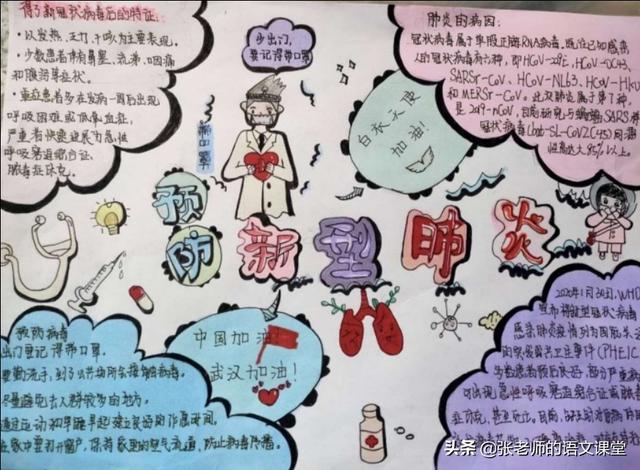 得了新冠状病毒后的特征:
·以发热、乏力、干咳为主要表现。
·少数患者伴有鼻塞、流涕、咽痛
和腹泻等症状。
·重症患者多在发病一周后出现
呼吸困难或低氧血症,
严重者快速进展为急性
呼吸窘迫综合征、
脓毒症休克。
少出门,
要记得带口罩
肺炎的病因:
冠状病毒属于单股正链RNA病毒,既往已知感病
人的冠状病毒有六种,即HCoV-229E,HCoV-OC43,
SARSr-CoV、HCoV-NL63、HCoV-HKU
和MERSr-CoV。此次肺炎属于第7种,
是2019-nCoV,目前研究与蝙蝠SARS样
冠状病毒(bat-SL-CoVZC45)同源
性高达85%以上。
白衣天使
加油!
预
防新型肺炎
中国加油!
武汉加油!
预防病毒
出门要记得带口罩。
要勤洗手,到了公共场所会接触细病毒。
尽量避免出入群较多的地方。
通过运动和早睡早起建立良好的作息时间。
在家中要打开窗户,保持家里的空气流通,防止病毒传播。
2020年1月30日,WHO
宣布将新型冠状病毒
感染肺炎疫情列为国际关
的突发公共卫生事件(PHEIC
患者预后良好,部分严重病
可出现急性呼吸窘迫综合征或脓毒
头条@张老师的语文课堂